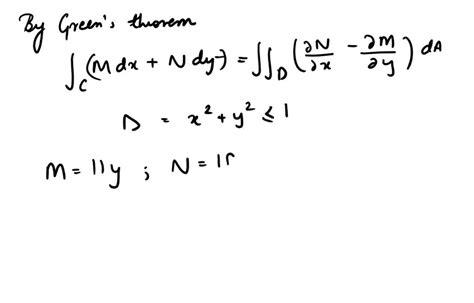 By Green's theorem
∫_C (M dx + N dy) = ∬_D (∂N/∂x - ∂M/∂y) dA
D = x² + y² ≤ 1
M = 11y ; N = 1